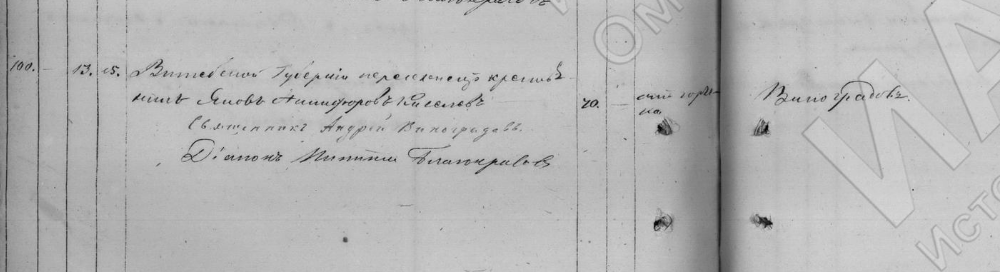 100. 13. 15. Витебской Губернiи переселенецъ кресть
янинъ Яковъ Никифоровъ Киселевъ 20. отъ горяч
ка Виноградовъ.
Священникъ Андрей Виноградовъ.
Дiаконъ Никита Благонравовъ
ОМ
ИА
ИСТО